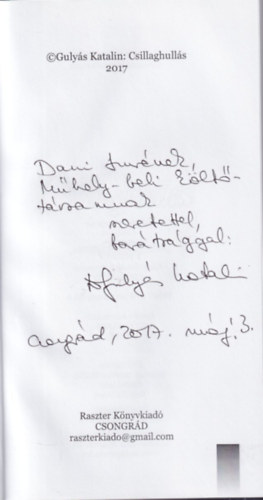 ©Gulyás Katalin: Csillaghullás
2017
Dani Imrének,
Műhely-beli költő-
társamnak
szeretettel,
barátsággal:
Gulyás Katalin
Csongrád, 2017. máj. 3.
Raszter Könyvkiadó
CSONGRÁD
raszterkiado@gmail.com